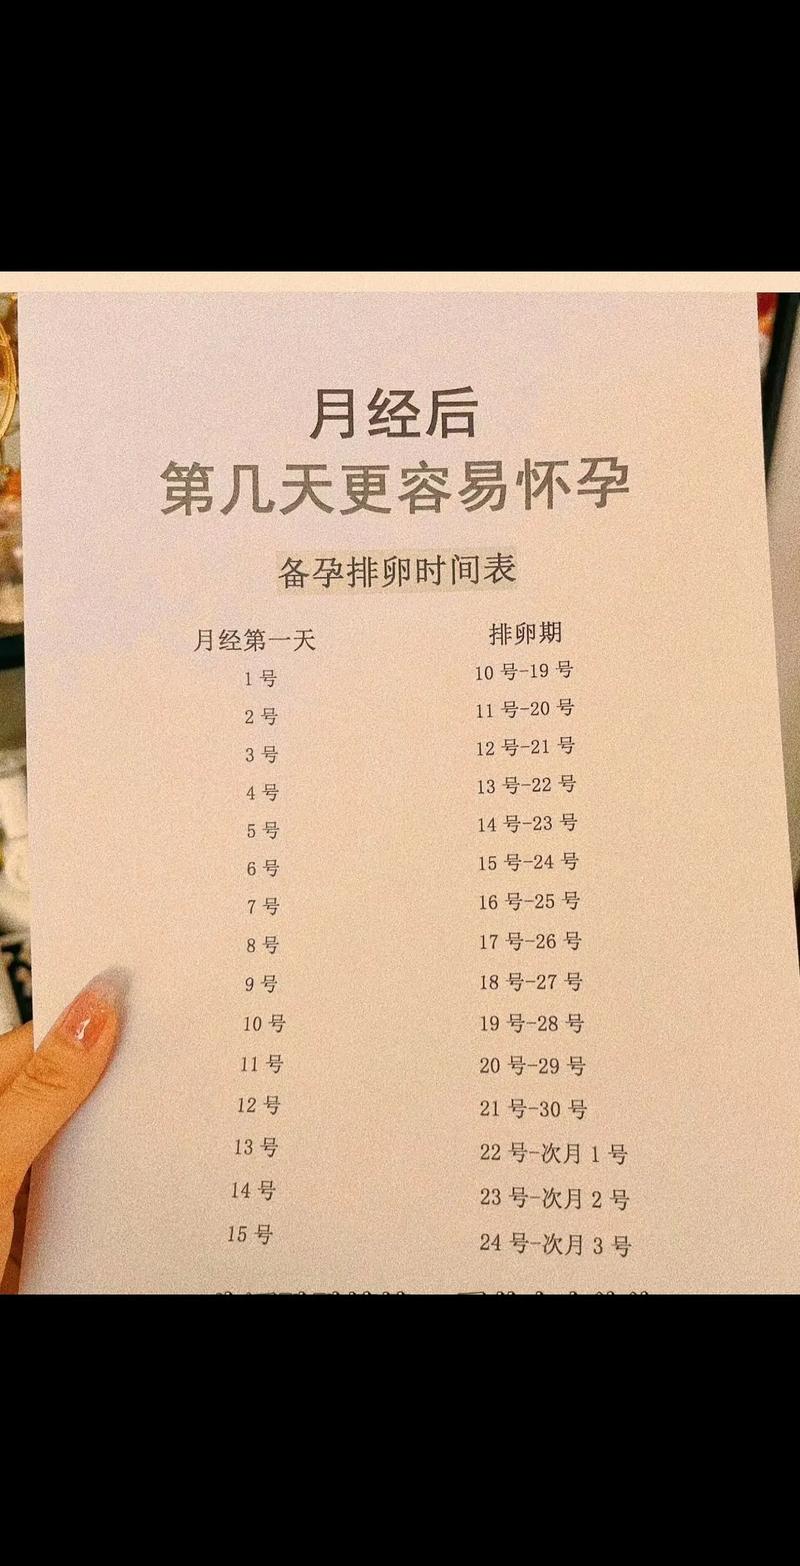 月经后
第几天更容易怀孕
备孕排卵时间表
月经第一天 排卵期
1 号 10 号-19 号
2 号 11 号-20 号
3 号 12 号-21 号
4 号 13 号-22 号
5 号 14 号-23 号
6 号 15 号-24 号
7 号 16 号-25 号
8 号 17 号-26 号
9 号 18 号-27 号
10 号 19 号-28 号
11 号 20 号-29 号
12 号 21 号-30 号
13 号 22 号-次月 1 号
14 号 23 号-次月 2 号
15 号 24 号-次月 3 号